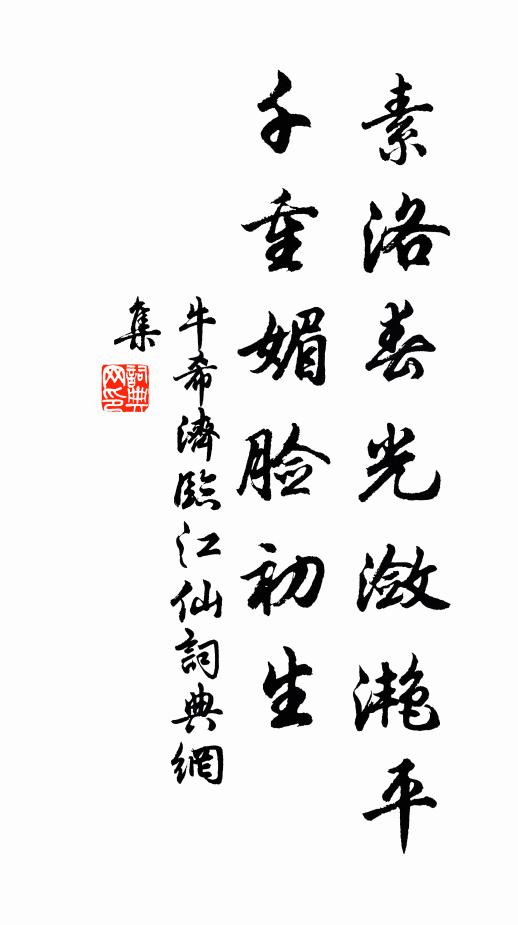 素洛春光潋灎平
千重媚脸初生
牛希濟臨江仙詞典網
集
詞典
网印